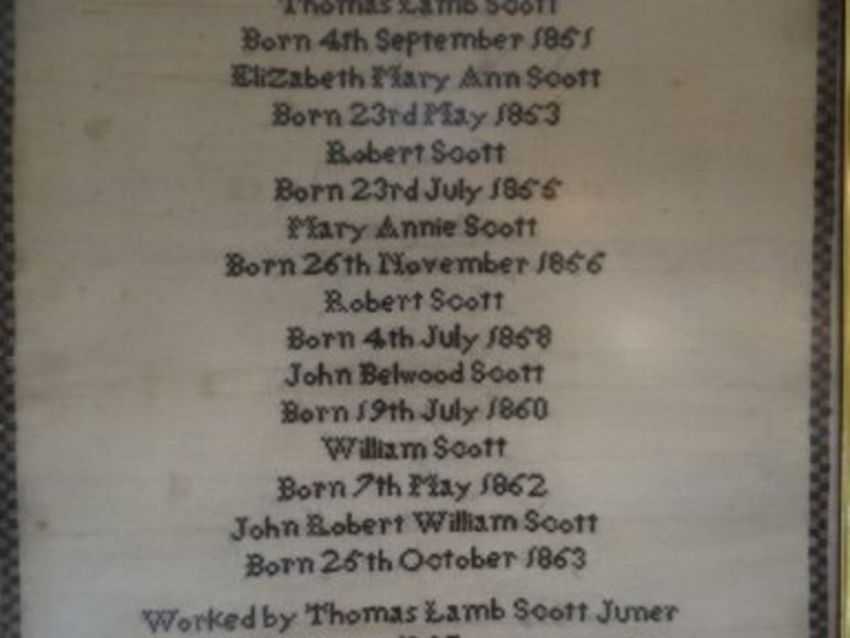 Thomas Lamb Scott
Born 4th September 1851
Elizabeth Mary Ann Scott
Born 23rd May 1853
Robert Scott
Born 23rd July 1855
Mary Annie Scott
Born 26th November 1856
Robert Scott
Born 4th July 1858
John Belwood Scott
Born 19th July 1860
William Scott
Born 7th May 1862
John Robert William Scott
Born 25th October 1863
Worked by Thomas Lamb Scott Juner